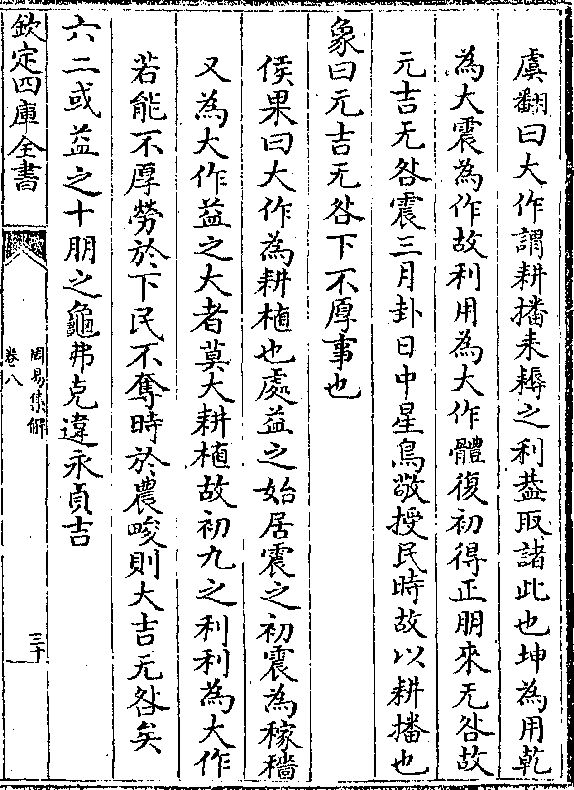 虞翻曰大作謂耕播耒耨之利葢取諸此也坤為用乾
為大震為作故利用為大作體復初得正朋來无咎故
元吉无咎震三月卦日中星鳥敬授民時故以耕播也
象曰元吉无咎下不厚事也
侯果曰大作為耕植也處益之始居震之初震為稼穡
又為大作益之大者莫大耕植故初九之利利為大作
若能不厚勞於下民不奪時於農畯則大吉无咎矣
六二或益之十朋之龜弗克違永貞吉
欽定四庫全書
周易集解
卷八
三十